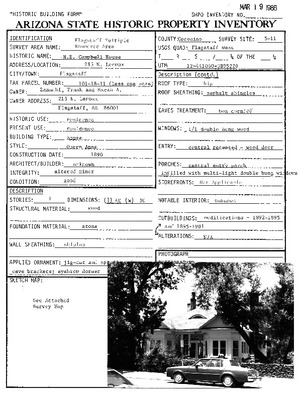 MAR 19 1986
"HISTORIC BUILDING FORM"
SHPO INVENTORY NO.
ARIZONA STATE HISTORIC PROPERTY INVENTORY
IDENTIFICATION
SURVEY AREA NAME: Flagstaff Multiple Resource Area
COUNTY: Coconino SURVEY SITE: 5-11
USGS QUAD: Flagstaff West
HISTORIC NAME: Campbell House
T R S / ¼ OF THE ¼
ADDRESS/LOCATION: 215 N. Leroux
UTM
CITY/TOWN: Flagstaff
Description (contd.)
TAX PARCEL NUMBER:
ROOF TYPE: hip
OWNER:
ROOF SHEATHING: asphalt shingles
OWNER ADDRESS: 215 N. Leroux
Flagstaff, AZ 86001
EAVES TREATMENT: box cornice
HISTORIC USE: Residence
PRESENT USE: Residence
WINDOWS: 1/1 double hung wood
BUILDING TYPE: House
STYLE: Queen Anne
ENTRY: central recessed - wood door
CONSTRUCTION DATE:
ARCHITECT/BUILDER: unknown
PORCHES: central entry porch
INTEGRITY: altered minor
infilled with multi-light double hung windows
CONDITION: good
STOREFRONTS: Not Applicable
DESCRIPTION
STORIES: 1 DIMENSIONS: (l) (w)
NOTABLE INTERIOR: Unknown
STRUCTURAL MATERIAL: wood
OUTBUILDINGS: modifications - 1892-1895
FOUNDATION MATERIAL: stone
and 1895-1901
ALTERATIONS: N/A
WALL SHEATHING: shiplap
PHOTOGRAPH
APPLIED ORNAMENT: jig-cut
eave brackets; eyebrow dormer
SKETCH MAP:
See Attached
Survey Map